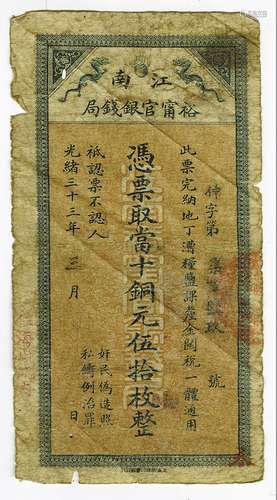 江南
裕甯官銀錢局
伸字第 號
此票完納地丁漕糧鹽課釐金關稅一體通用
憑票取當十銅元伍拾枚整
祗認票不認人
奸民僞造照
私鑄例治罪
光緒三十三年三月 日